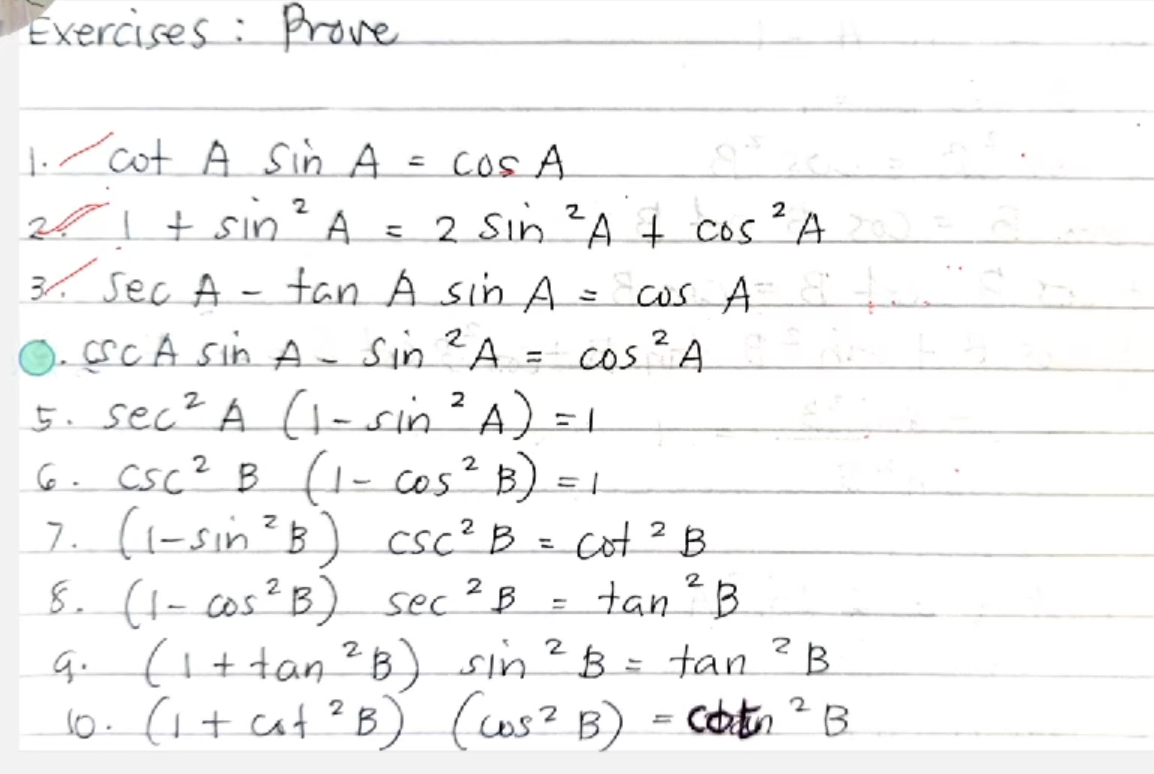 Exercises : Prove
1. cot A sin A = cos A
2. 1 + sin² A = 2 sin² A + cos² A
3. sec A - tan A sin A = cos A
. csc A sin A - sin² A = cos² A
5. sec² A (1 - sin² A) = 1
6. csc² B (1 - cos² B) = 1
7. (1 - sin² B) csc² B = cot² B
8. (1 - cos² B) sec² B = tan² B
9. (1 + tan² B) sin² B = tan² B
10. (1 + cot² B) (cos² B) = ² B